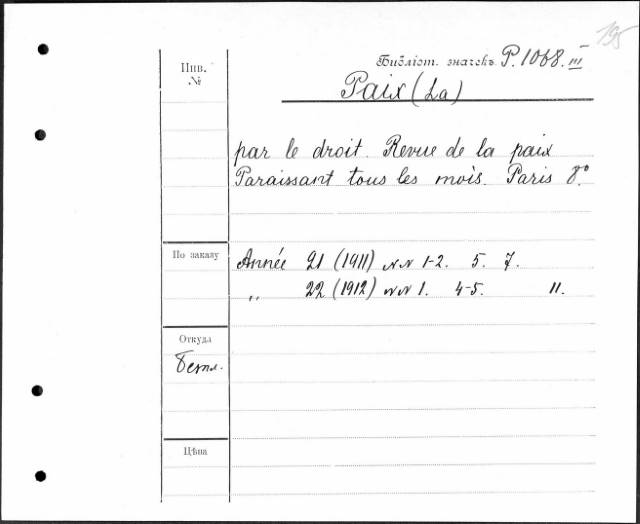 195
Библіот. значекъ P. 1068. III
Инв.
№
Paix (La)
par le droit. Revue de la paix
Paraissant tous les mois. Paris 8°.
По заказу
Année 21 (1911) NN 1-2. 5. 7.
„ 22 (1912) NN 1. 4-5. 11.
Откуда
Безпл.
Цѣна